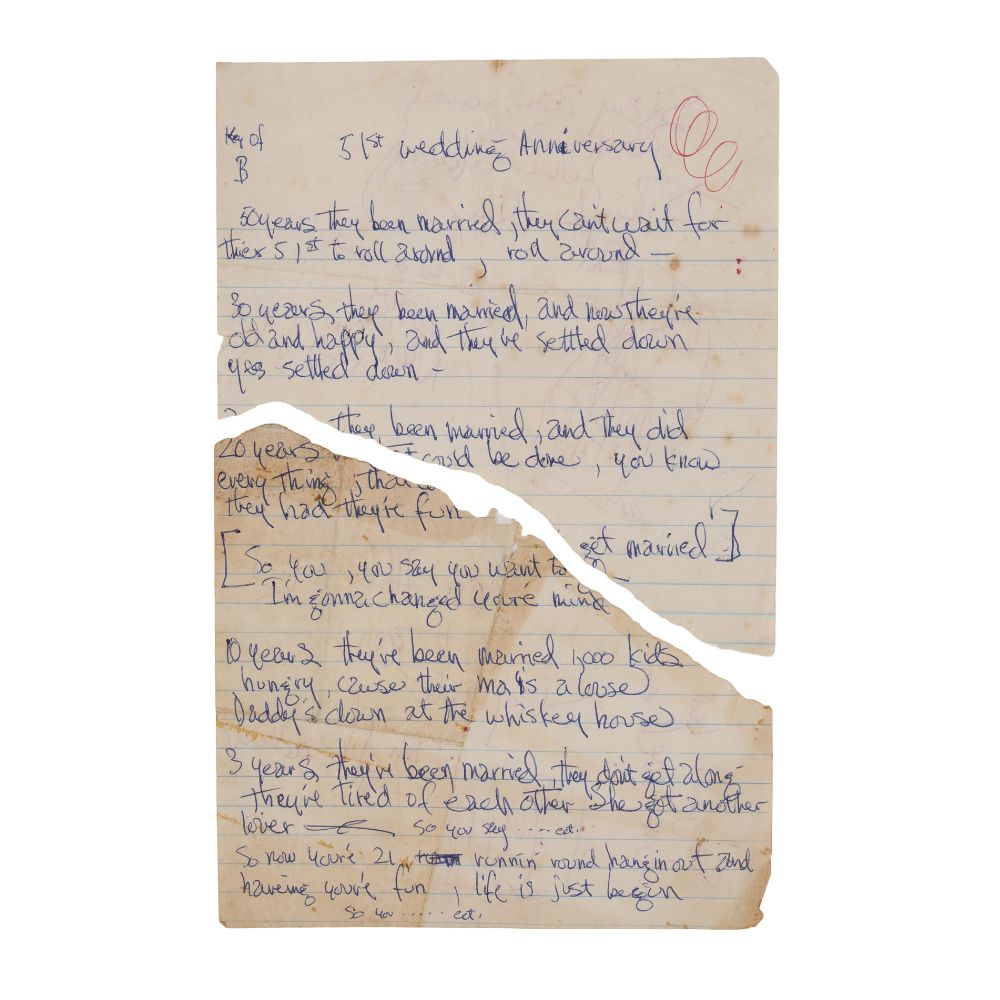 Key of
B
51st wedding Anniversary
50 years they been married, they can't wait for
thier 51st to roll around, roll around —
30 years, they been married, and now they're
old and happy, and they've settled down
yes settled down -
they been married, and they did
20 years
could be done, you know
every thing, that
they had they're fun
get married]
[So you, you say you want to
I'm gonna changed you're mind
10 years they've been married 1,000 kids
hungry, cause their ma's a louse
Daddy's down at the whiskey house
3 years they've been married, they don't get along
they're tired of each other She got another
lover — so you say ..... ect.
So now you're 21, runnin' round hangin out and
haveing you're fun, life is just begin
So you ..... ect.